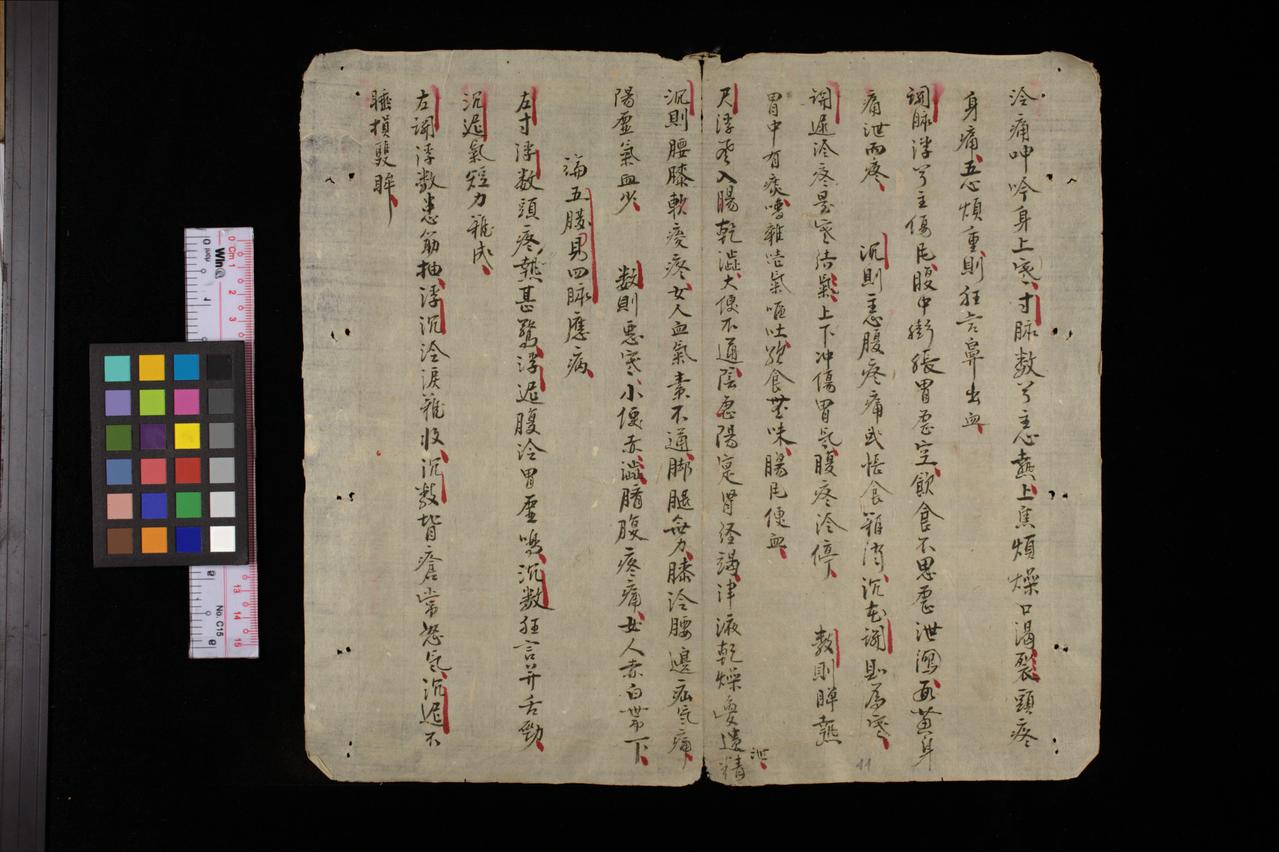 冷痛呻吟身上寒寸脉数兮主患熱上焦煩燥口渴裂頭疼
身痛五心煩重則狂言鼻出血
関脉浮兮主傷尼腹中衝脹胃虚空飲食不思虚泄瀉面黄身
痛泄而疼 沉則患腹疼痛或悵食難消沉在関則為寒
関遲冷疼是寒结氣上下冲傷胃気腹疼冷停 数則脾熱
胃中有痰嘈雜噎氣嘔吐飽食無味腸尼便血
尺浮季入腸乾澁大便不通陰虚陽寔胃经渴津液乾燥夢遺精泄
沉則腰膝軟痠疼女人血氣素不通脚腿無力膝冷腰邊疝気痛
陽虚氣血少 数則悪寒小便赤澁臍腹疼痛女人赤白帶下
論五臟見四脉應病
左寸浮数頭疼熱甚驚浮遲腹冷胃虚鳴沉数狂言并舌勁
沉遲氣短力難成
左関浮数患筋抽浮沉冷淚難收沉数背瘡常怒気沉遲不
睡損雙眸
11
Cm 1
No. C15